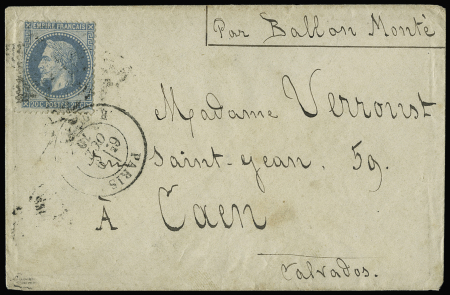 Par Ballon Monté
EMPIRE FRANÇAIS
20 C POSTES 20 C
PARIS
Madame Verroust
Rue Saint-Jean. 59.
À Caen
Calvados.